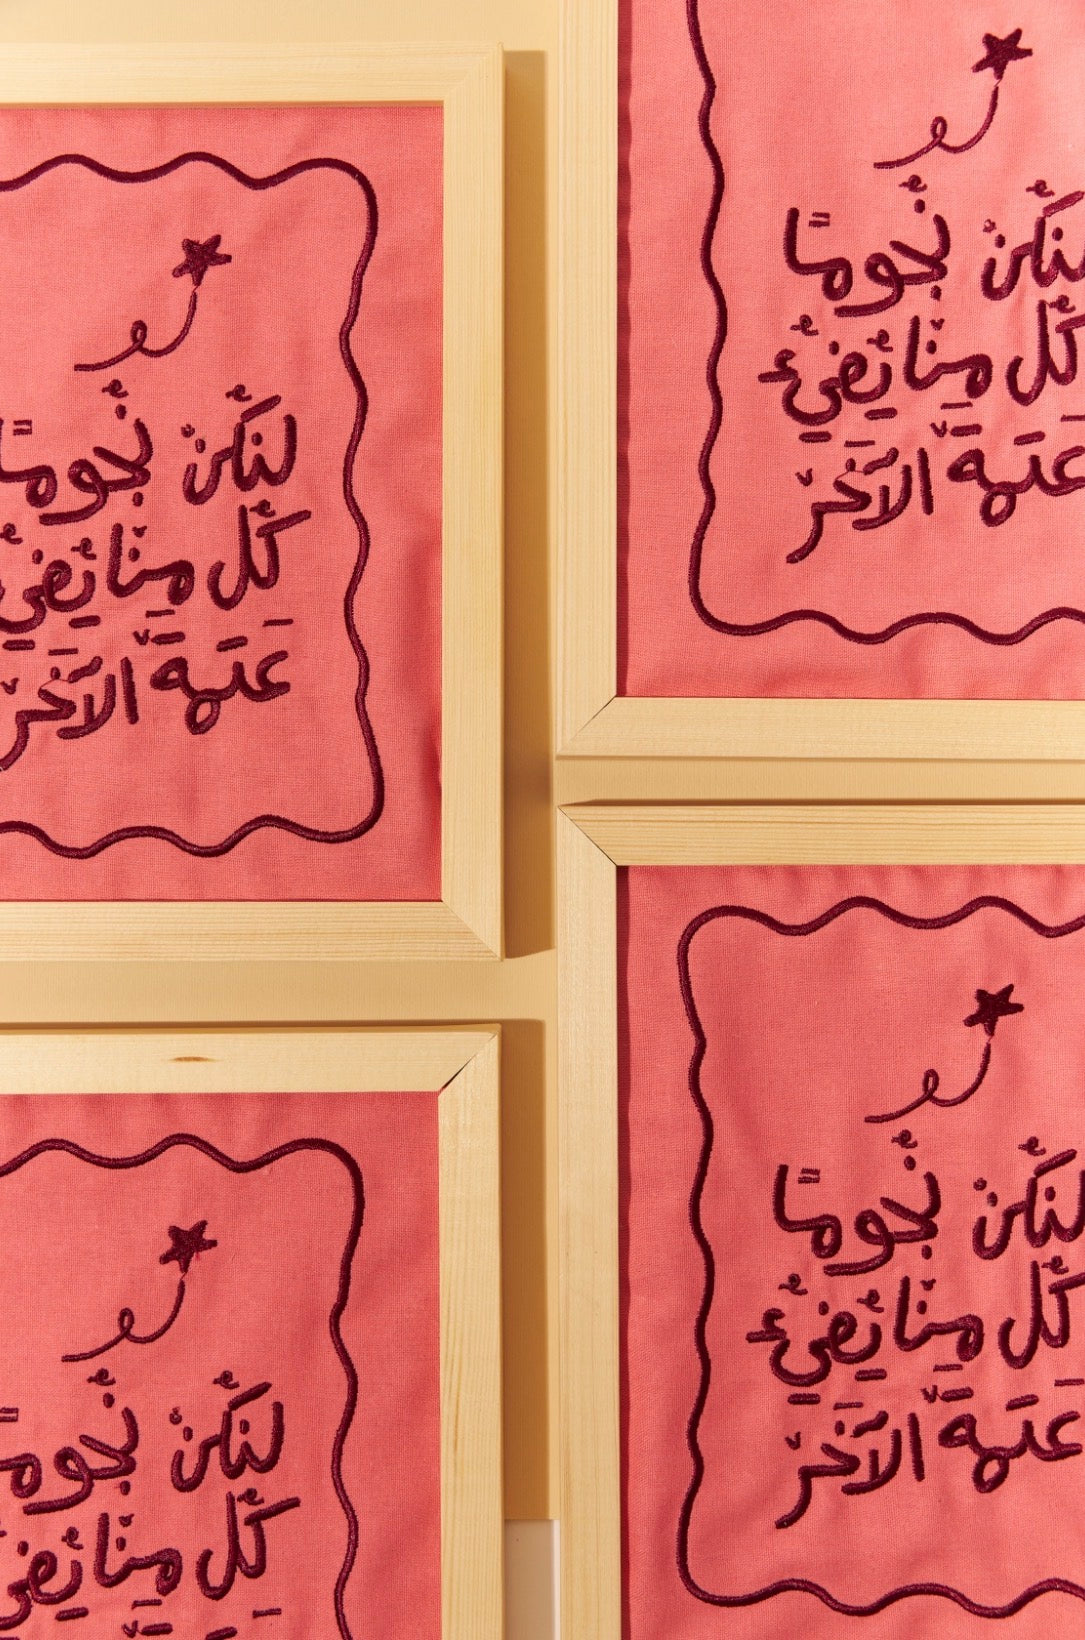 لِنَكُنْ نُجُومًا
كُلٌّ مِنّا يُضِيءُ
عَتَمَةَ الآخَرْ
لِنَكُنْ نُجُومًا
كُلٌّ مِنّا يُضِيءُ
عَتَمَةَ الآخَرْ
لِنَكُنْ نُجُومًا
كُلٌّ مِنّا يُضِيءُ
لِنَكُنْ نُجُومًا
كُلٌّ مِنّا يُضِيءُ
عَتَمَةَ الآخَرْ